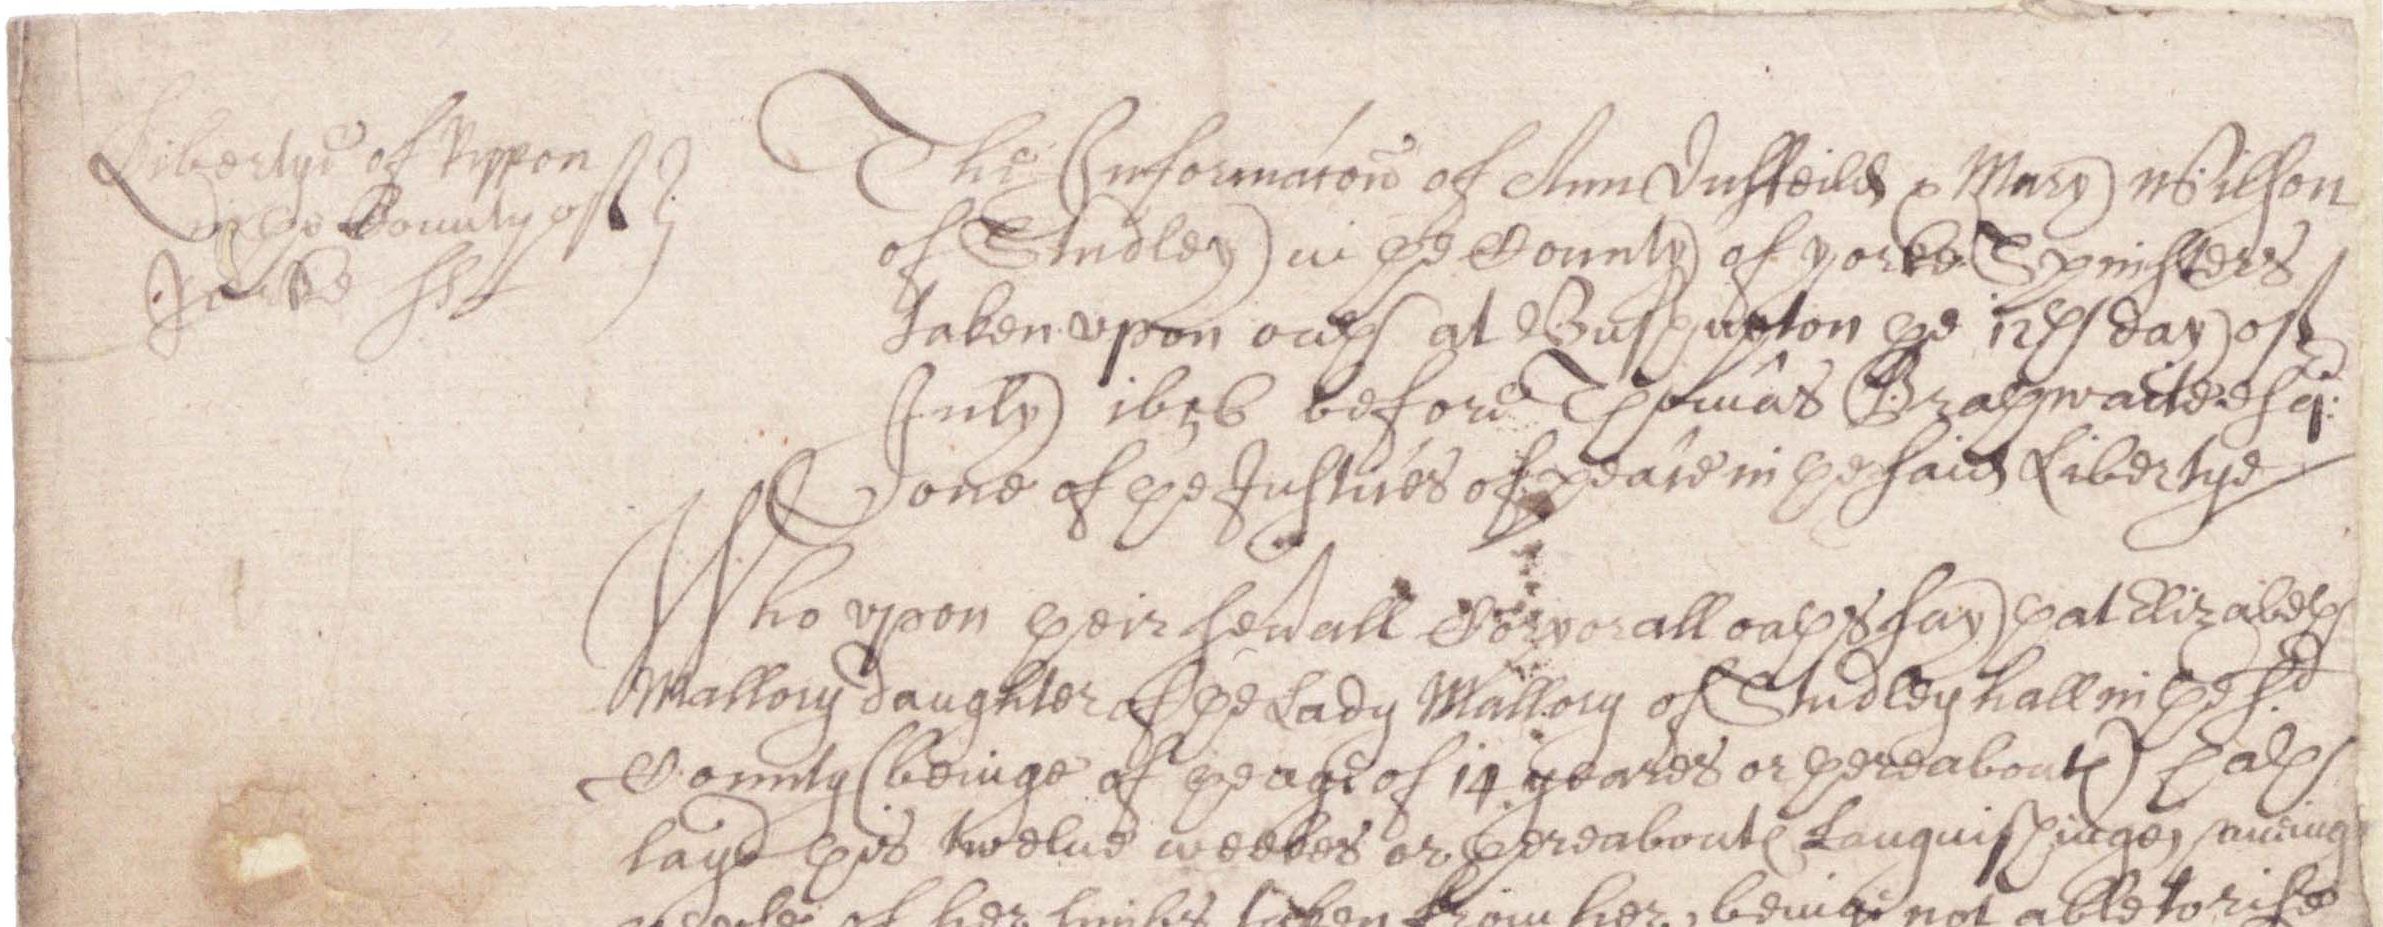 Libertye of Rippon
in ye County of
Yorke ss
The Informacon of Ann Duffeild & Mary Wilson
of Studley in ye County of yorke Spinsters
taken vpon oath at Bushupton ye 12th day of
July 1656 before Thomas Brathwaite esq:
one of ye Justices of peace in ye said Libertye
Who vpon their seūall Corporall oaths say yat Elizabeth
Mallory daughter of ye Lady Mallory of Studley hall in ye sd
County (beinge of ye age of 14 yeares or thereaboute) hath
layd this twelue weekes or thereaboute Languishinge,
of her limbs taken from her, beinge not able to rise